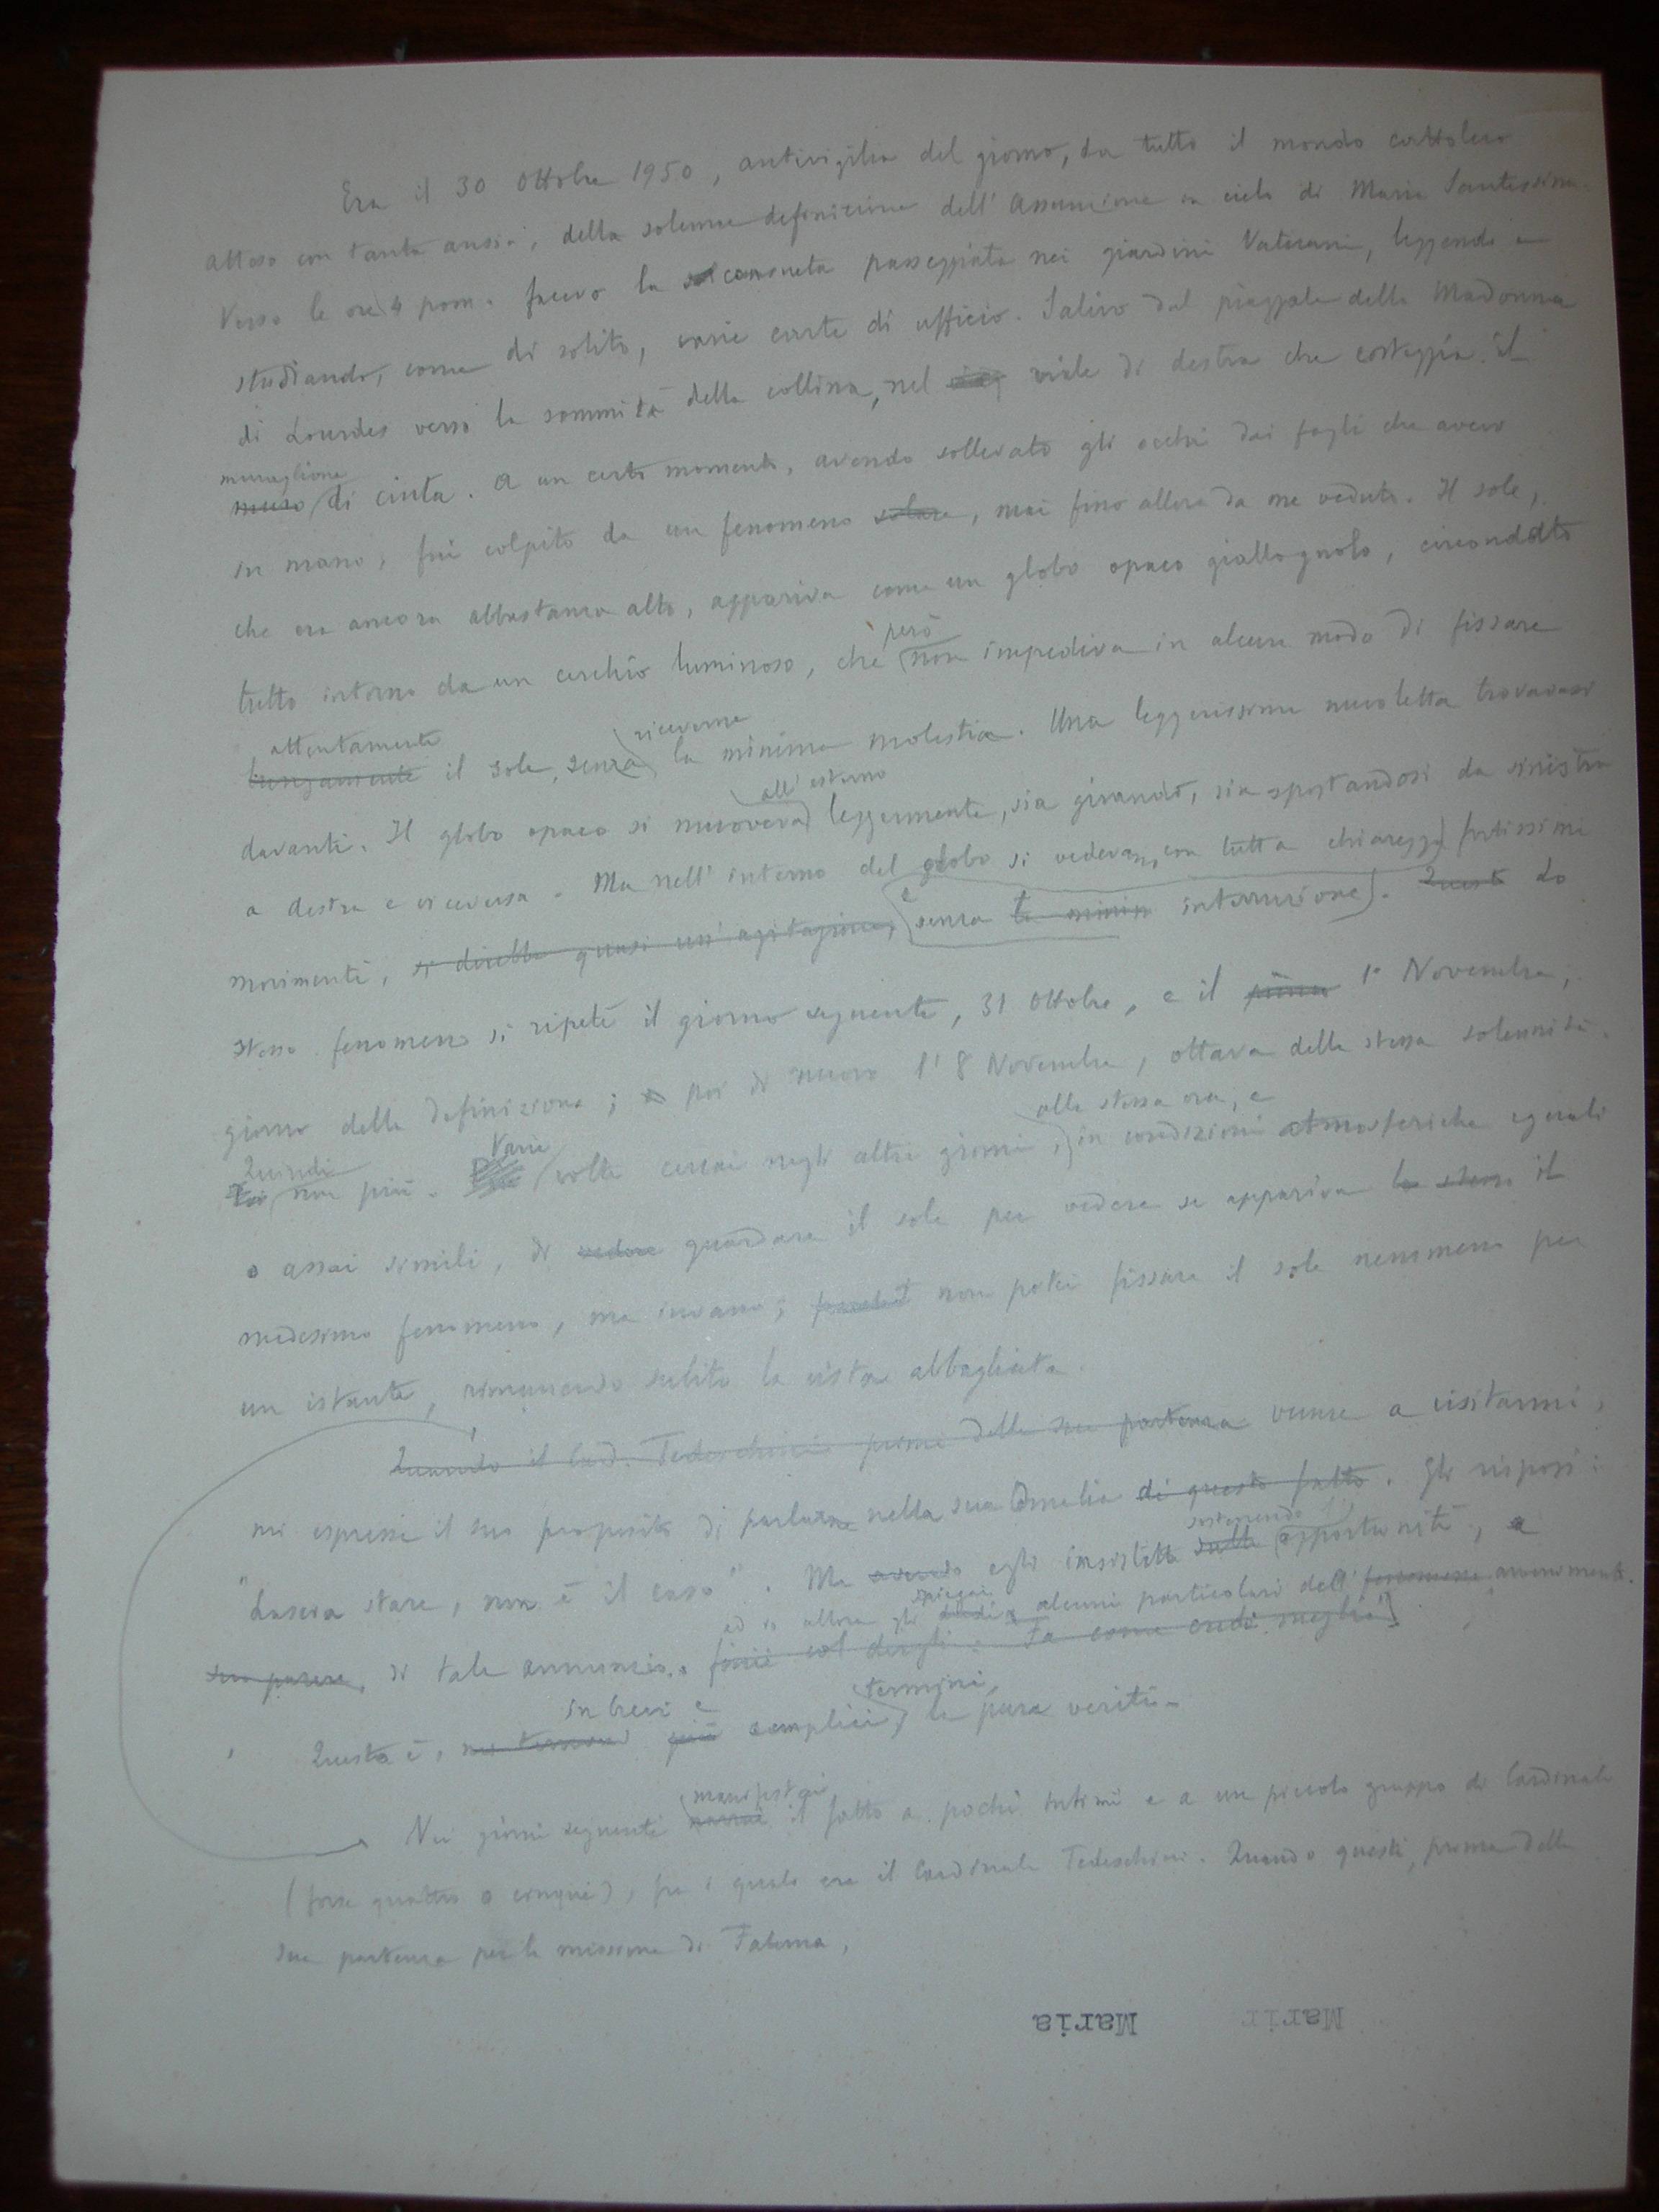 Era il 30 Ottobre 1950, antivigilia del giorno, da tutto il mondo cattolico
atteso con tanta ansia, della solenne definizione dell'Assunzione in cielo di Maria Santissima.
Verso le ore 4 pom. facevo la consueta passeggiata nei giardini Vaticani, leggendo e
studiando, come di solito, varie carte di ufficio. Salivo dal piazzale della Madonna
di Lourdes verso la sommità della collina, nel viale di destra che costeggia il
muraglione
muro di cinta. A un certo momento, avendo sollevato gli occhi dai fogli che avevo
in mano, fui colpito da un fenomeno solare, mai fino allora da me veduto. Il sole,
che era ancora abbastanza alto, appariva come un globo opaco giallognolo, circondato
però
tutto intorno da un cerchio luminoso, che non impediva in alcun modo di fissare
attentamente riceverne
lungamente il sole, senza la minima molestia. Una leggerissima nuvoletta trovavasi
all'esterno
davanti. Il globo opaco si muoveva leggermente, sia girando, sia spostandosi da sinistra
a destra e viceversa. Ma nell'interno del globo si vedevan, con tutta chiarezza fortissimi
movimenti, si direbbe quasi un'agitazione, e senza la minim interruzione. Questo Lo
stesso fenomeno si ripeté il giorno seguente, 31 Ottobre, e il primo 1° Novembre,
giorno della definizione; e poi di nuovo l'8 Novembre, ottava della stessa solennità.
Quindi Varie alla stessa ora, e
Poi non più. volte cercai negli altri giorni, in condizioni atmosferiche eguali
o assai simili, di vedere guardare il sole per vedere se appariva lo stesso il
medesimo fenomeno, ma invano; non potei fissare il sole nemmeno per
un istante, rimanendo subito la vista abbagliata.
Quando il Card. Tedeschini prima della sua partenza venne a visitarmi,
mi espresse il suo proposito di parlarne nella sua Omelia di questo fatto. Gli risposi:
sostenendo
"Lascia stare, non è il caso". Ma avendo egli insistette sulla opportunità, e
ed io allora gli spiegai alcuni particolari dell' avvenimento.
suo parere, di tale annunzio. finii col dirgli: Fa come credi meglio"
in brevi e termini,
Questa è, più semplici la pura verità.
manifestai
Nei giorni seguenti narrai il fatto a pochi intimi e a un piccolo gruppo di Cardinali
(forse quattro o cinque), fra i quali era il Cardinale Tedeschini. Quando questi, prima della
sua partenza per la missione di Fatima,
Maria Marir